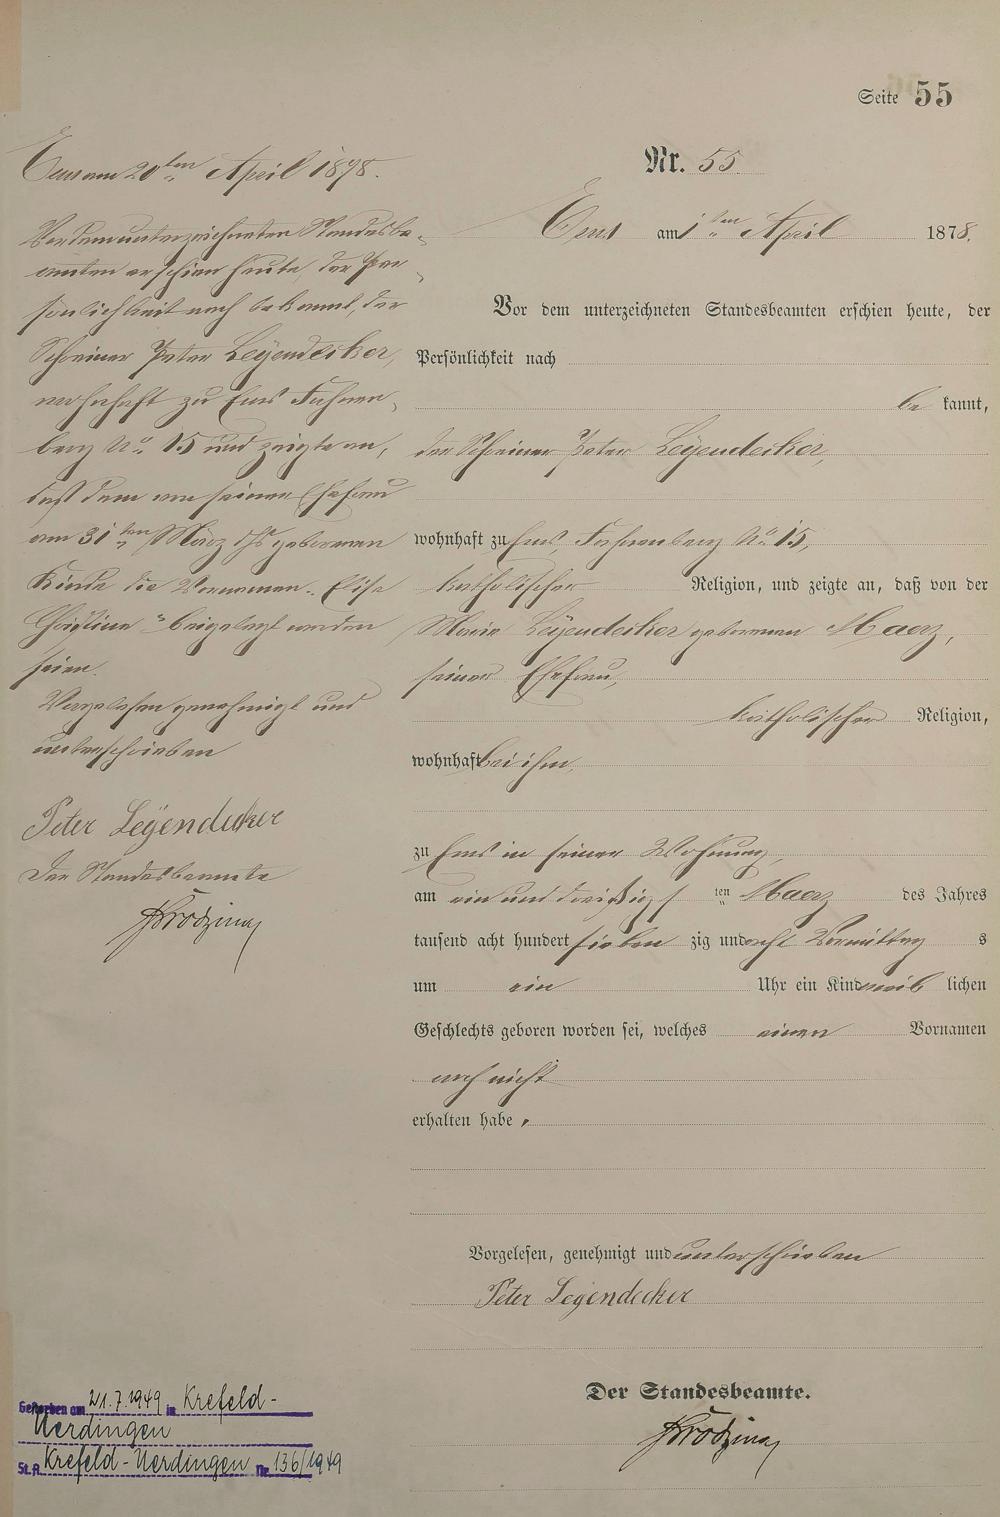 Seite 55
Nr. 55.
Ems am 1ten April 1878.
Vor dem unterzeichneten Standesbeamten erschien heute, der
Persönlichkeit nach
be kannt,
der Schreiner Peter Leÿendecker,
wohnhaft zu Ems, Fahnenberg No. 15,
katholischer Religion, und zeigte an, daß von der
Marie Leÿendecker geborenen Maerz,
seiner Ehefrau,
katholischer Religion,
wohnhaft bei ihm,
zu Ems in seiner Wohnung,
am ein und dreißigsten Maerz des Jahres
tausend acht hundert sieben zig und acht Vormittag s
um ein Uhr ein Kind weib lichen
Geschlechts geboren worden sei, welches einen Vornamen
noch nicht
erhalten habe.
Vorgelesen, genehmigt und unterschrieben
Peter Leÿendecker
Der Standesbeamte.
Ems am 20ten April 1878.
Vor dem unterzeichneten Standesbe-
amten erschien heute, der Per-
sönlichkeit nach bekannt, der
Schreiner Peter Leÿendecker,
wohnhaft zu Ems Fahnen-
berg No. 15 und zeigte an,
daß dem von seiner Ehefrau
am 31ten März ds Js geborenen
Kinde die Vornamen „Elise
Christine" beigelegt worden
seien.
Vorgelesen genehmigt und
unterschrieben
Peter Leÿendecker
Der Standesbeamte
Gestorben am 21.7.1949 in Krefeld-
Uerdingen
St.A. Krefeld-Uerdingen Nr. 136/1949